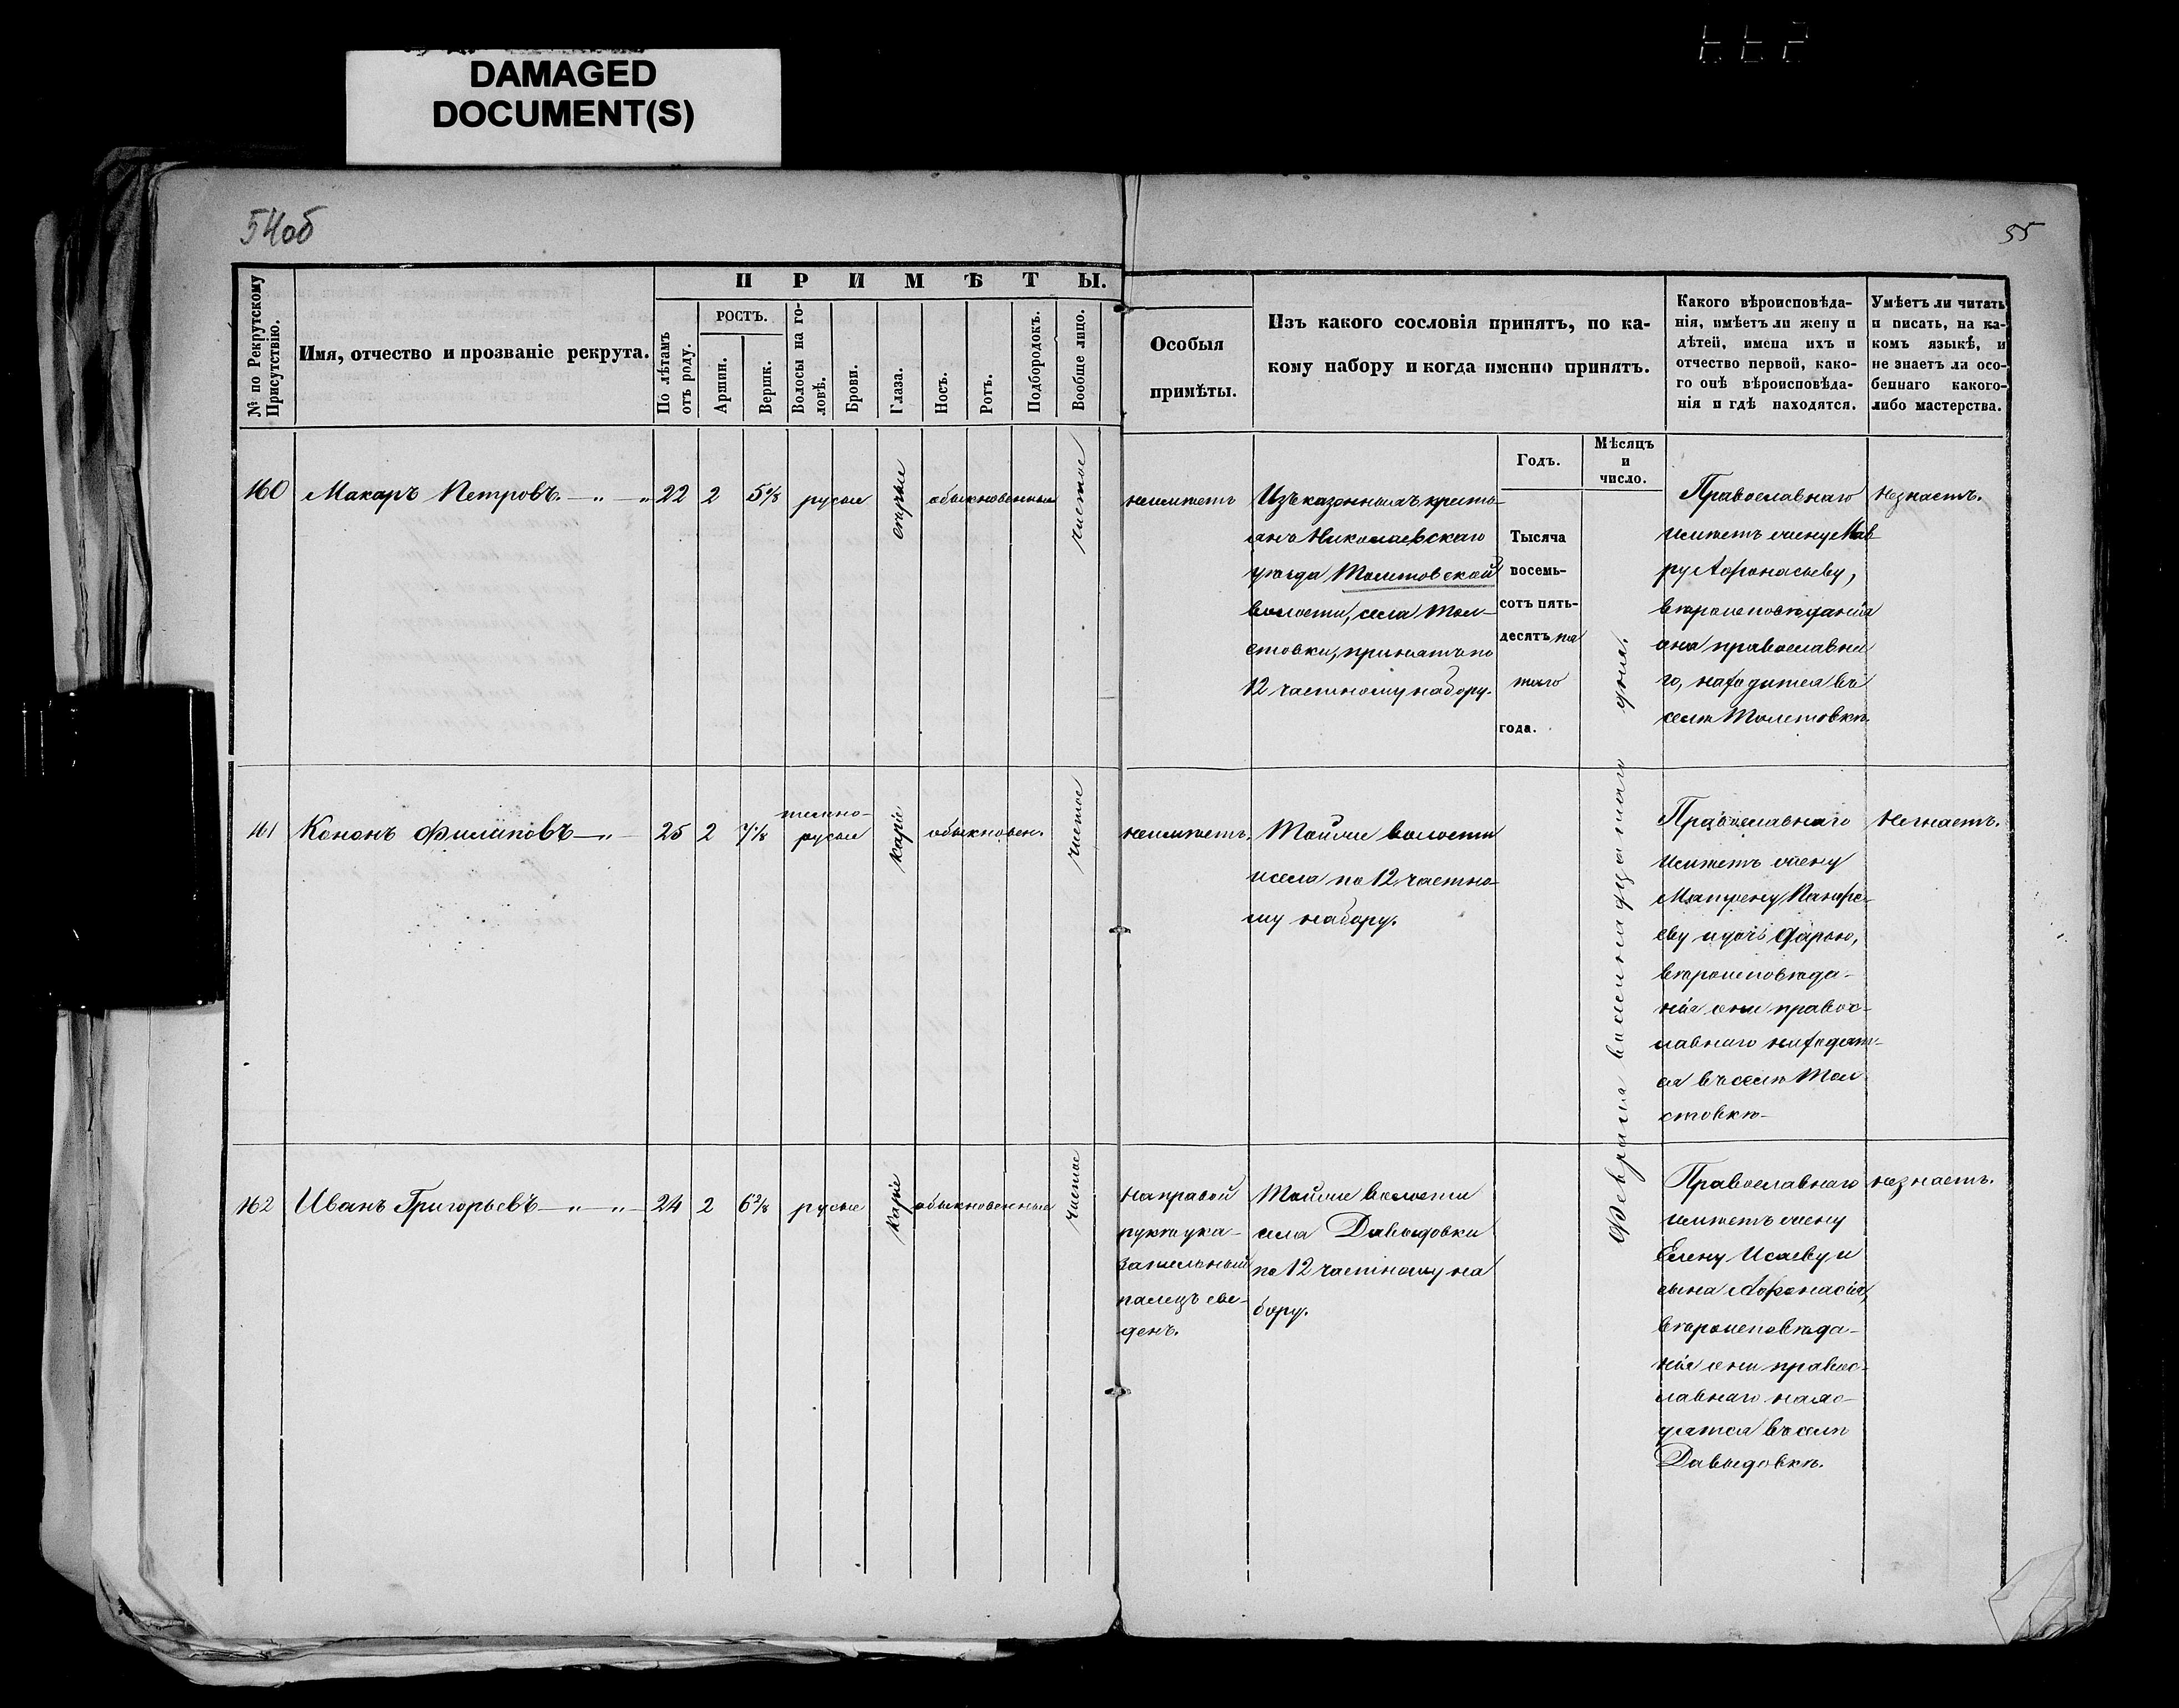 DAMAGED
DOCUMENT(S)
54об
55
№ по Рекрутскому
Присутствію.
Имя, отчество и прозваніе рекрута.
ПРИМѢТЫ.
По лѣтамъ
отъ роду.
РОСТЪ.
Аршин.
Вершк.
Волосы на го-
ловѣ.
Брови.
Глаза.
Носъ.
Ротъ.
Подбородокъ.
Вообще лицо.
Особыя
примѣты.
Изъ какого сословія принятъ, по ка-
кому набору и когда именно принятъ.
Какого вѣроисповѣда-
нія, имѣетъ ли жену и
дѣтей, имена ихъ и
отчество первой, како-
го онѣ вѣроисповѣда-
нія и гдѣ находятся.
Умѣетъ ли читать
и писать, на ка-
комъ языкѣ, и
не знаетъ ли осо-
беннаго какого-
либо мастерства.
Годъ.
Мѣсяцъ
и
число.
160 Макаръ Петровъ. 22 2 русые сѣрые обыкновенные чистое
неимѣетъ
Изъ казенныхъ кресть-
янъ Николаевскаго
уѣзда Толстовской
волости, села Тол-
стовки, принятъ по
12 частному набору.
Тысяча
восемь-
сотъ пять-
десятъ пя
таго
года.
Февраля восемнадцатаго дня.
Православнаго
имѣетъ жену Мав
ру Афонасьеву,
вѣроисповѣданія
она православна
го, находится въ
селѣ Толстовкѣ.
незнаетъ.
161 Кононъ Филиповъ 25 2 7 1/8 темно-
русые каріе обыкновен. чистое
неимѣетъ.
Тойже волости
исела по 12 частно-
му набору.
Православнаго
имѣетъ жену
Матрену Панфе-
еву и дочь Дарью,
вѣроисповѣда-
нія они правос-
лавнаго находят-
ся въ селѣ Тол
стовкѣ
Незнаетъ.
162 Иванъ Григорьевъ 24 2 6 2/8 русые каріе обыкновенные чистое
На правой
рукѣ ука-
зательный
палецъ све-
денъ.
Тойже волости
села Давыдовки
по 12 частному на
бору.
Православнаго
имѣетъ жену
Елену Исаеву и
сына Афонасія,
вѣроисповѣда-
нія они правос-
лавнаго нахо-
дятся въ селѣ
Давыдовкѣ.
незнаетъ.